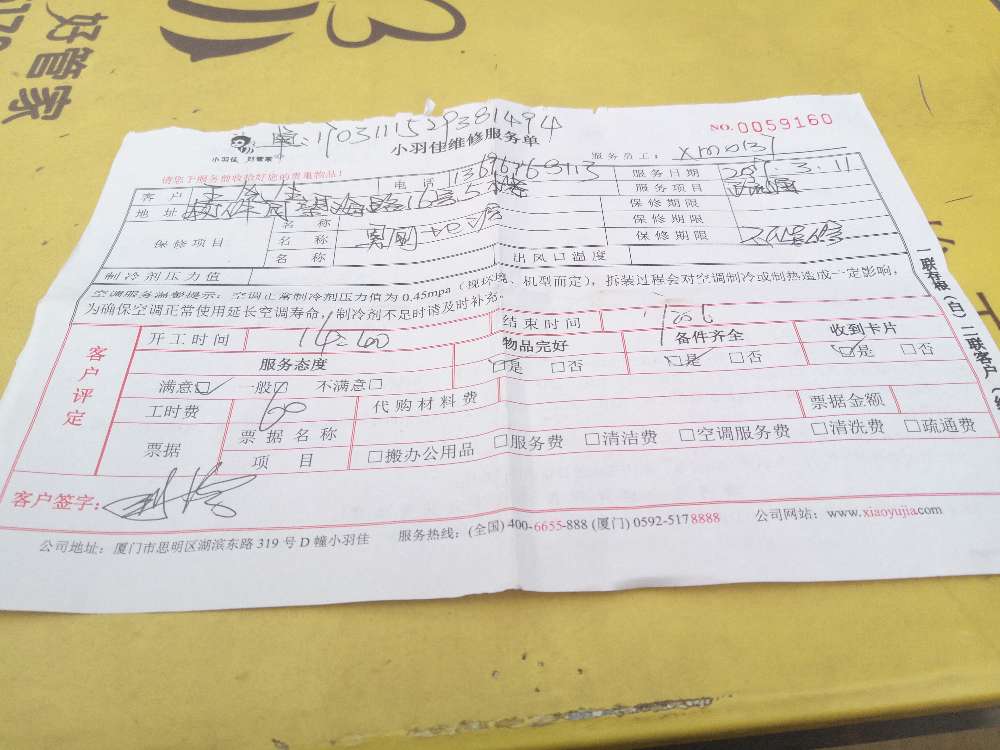 好管家
单:1703111529381494
小羽佳 好管家
小羽佳维修服务单
NO.0059160
请您于服务前收拾好您的贵重物品!
服务员工: XM00131
客户 电话 服务日期 2017.3.11
地址 望海路16号5楼 服务项目
保修项目 名称 保修期限
名称 保修期限
名称 保修期限
制冷剂压力值 出风口温度
空调服务温馨提示:空调正常制冷剂压力值为0.45mpa(视环境、机型而定),拆装过程会对空调制冷或制热造成一定影响,
为确保空调正常使用延长空调寿命,制冷剂不足时请及时补充。
客户评定
开工时间 14:00 结束时间
服务态度 物品完好 备件齐全 收到卡片
满意☑ 一般☑ 不满意□ ☑是 □否 ☑是 □否 ☑是 □否
工时费 60 代购材料费 票据金额
票据 票据名称
项目 □搬办公用品 □服务费 □清洁费 □空调服务费 □清洗费 □疏通费
客户签字:
公司地址:厦门市思明区湖滨东路319号D幢小羽佳 服务热线:(全国)400-6655-888(厦门)0592-5178888 公司网站:www.xiaoyujia.com
一联存根(白)二联客户(